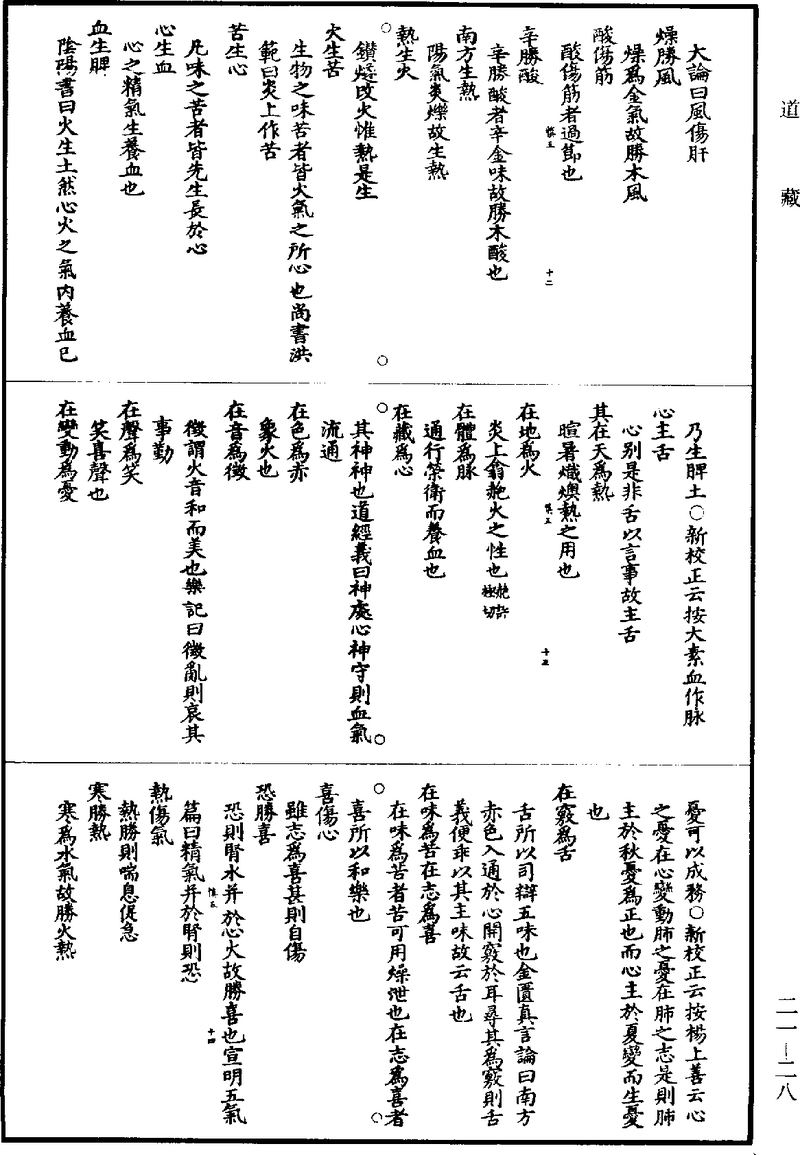 道藏
大論曰風傷肝
燥勝風
燥爲金氣故勝木風
酸傷筋
酸傷筋者過節也
辛勝酸
辛勝酸者辛金味故勝木酸也
南方生熱
陽氣炎爍故生熱
熱生火
鑽燧改火惟熱是生
火生苦
生物之味苦者皆火氣之所心也尚書洪
範曰炎上作苦
苦生心
凡味之苦者皆先生長於心
心生血
心之精氣生養血也
血生脾
陰陽書曰火生土然心火之氣內養血已
十二
乃生脾土○新校正云按大素血作脉
心主舌
心別是非舌以言事故主舌
其在天爲熱
暄暑熾燠熱之用也
在地爲火
炎上翕赩火之性也赩許極切
在體爲脉
通行榮衛而養血也
在藏爲心
其神神也道經義曰神處心神守則血氣
流通
在色爲赤
象火也
在音爲徵
徵謂火音和而美也樂記曰徵亂則哀其
事勤
在聲爲笑
笑喜聲也
在變動爲憂
憂可以成務○新校正云按楊上善云心
之憂在心變動肺之憂在肺之志是則肺
主於秋憂爲正也而心主於夏變而生憂
也
在竅爲舌
舌所以司辯五味也金匱真言論曰南方
赤色入通於心開竅於耳尋其爲竅則舌
義便乖以其主味故云舌也
在味爲苦在志爲喜
在味爲苦者苦可用燥泄也在志爲喜者
喜所以和樂也
喜傷心
雖志爲喜甚則自傷
恐勝喜
恐則腎水并於心火故勝喜也宣明五氣
篇曰精氣并於腎則恐
十四
熱傷氣
熱勝則喘息促急
寒勝熱
寒爲水氣故勝火熱
二一—二八